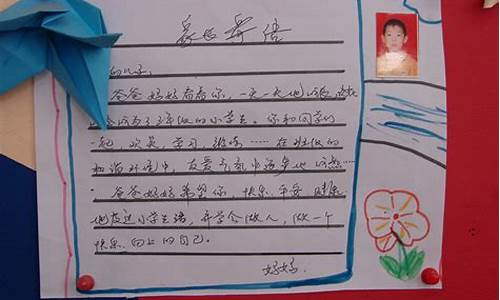 家长寄语
的儿子：
爸爸妈妈看着你，一天一天地
了三年级的小学生。你和同学们
一起，欢笑，学习，锻炼……在班级的
中，友爱气氛中
爸爸妈妈希望你，快乐、平安、健康
地度过小学生活，并学会做人，做一个
快乐向上的自己。
妈妈